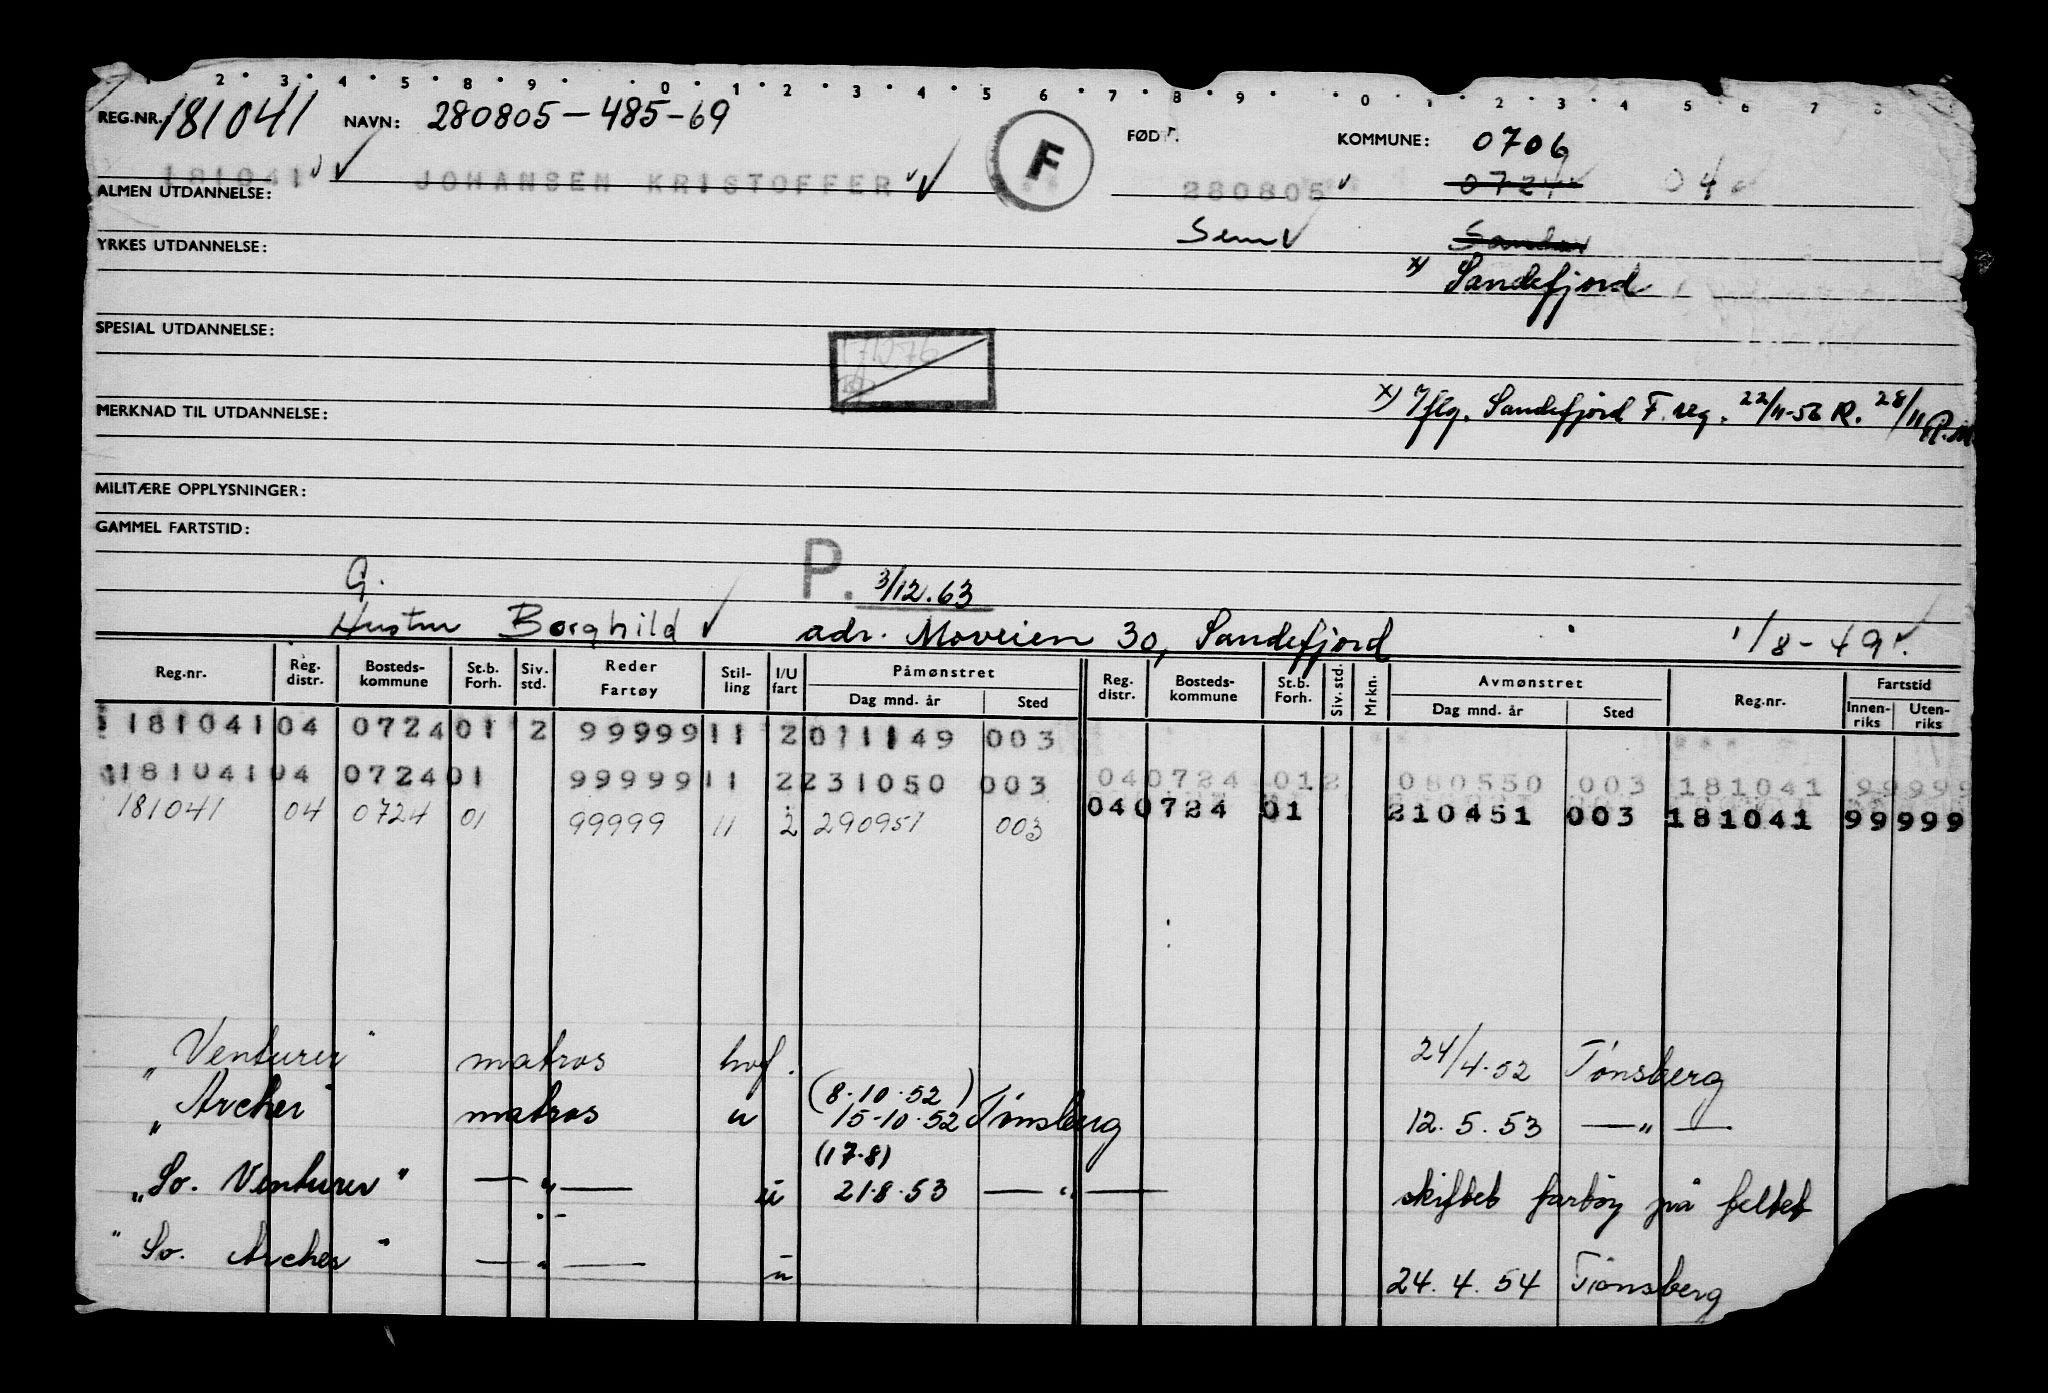 1 2 3 4 5 8 9 0 1 2 3 4 5 6 7 8 9 0 1 2 3 4 5 6 7 8
REG.NR. 181041 NAVN: 280805-485-69 F FØDT. KOMMUNE: 0706
181041 JOHANSEN KRISTOFFER 280805 0724 04
ALMEN UTDANNELSE:
Sem Sandar
YRKES UTDANNELSE:
x) Sandefjord
SPESIAL UTDANNELSE:
x) Iflg. Sandefjord F. reg. 22/11-56 R. 28/11
MERKNAD TIL UTDANNELSE:
MILITÆRE OPPLYSNINGER:
GAMMEL FARTSTID:
G. P. 3/12.63
Hustru Borghild adr. Moveien 30, Sandefjord 1/8-49.
Reg.nr. Reg. distr. Bosteds-kommune St.b. Forh. Siv. std. Reder Fartøy Stil-ling I/U fart Påmønstret Dag mnd. år Sted Reg. distr. Bosteds-kommune St.b. Forh. Siv. std. Mrkn. Avmønstret Dag mnd. år Sted Reg.nr. Fartstid Innen-riks Uten-riks
181041 04 0724 01 2 99999 11 2 011149 003
181041 04 0724 01 99999 11 2 231050 003 04 0724 01 2 080550 003 181041 99999
181041 04 0724 01 99999 11 2 290951 003 04 0724 01 210451 003 181041 99999
"Venturer" matros hvf. 24/4-52 Tønsberg
(8.10.52)
"Archer" matros u 15-10-52 Tønsberg 12.5.53 —"—
(17.8)
"So. Venturer" —"— u 21.8.53 —"— skiftet fartøy på feltet
"So. Archer" —"— u 24.4.54 Tønsberg